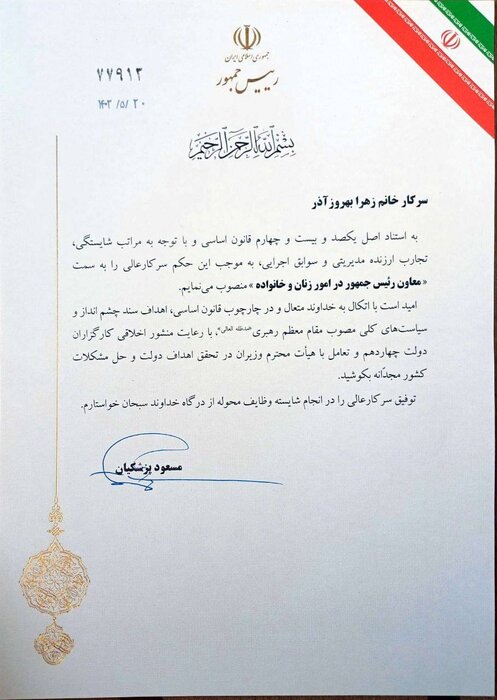 جمهوری اسلامی ایران
رییس جمهور
۷۷۹۱۳
۱۴۰۳/۵/۲۰
بسم الله الرحمن الرحیم
سرکار خانم زهرا بهروزآذر
به استناد اصل یکصد و بیست و چهارم قانون اساسی و با توجه به مراتب شایستگی،
تجارب ارزنده مدیریتی و سوابق اجرایی، به موجب این حکم سرکارعالی را به سمت
«معاون رئیس جمهور در امور زنان و خانواده» منصوب می‌نمایم.
امید است با اتکال به خداوند متعال و در چارچوب قانون اساسی، اهداف سند چشم انداز و
سیاست‌های کلی مصوب مقام معظم رهبری(مدظله العالی)، با رعایت منشور اخلاقی کارگزاران
دولت چهاردهم و تعامل با هیأت محترم وزیران در تحقق اهداف دولت و حل مشکلات
کشور مجدّانه بکوشید.
توفیق سرکارعالی را در انجام شایسته وظایف محوله از درگاه خداوند سبحان خواستارم.
مسعود پزشکیان